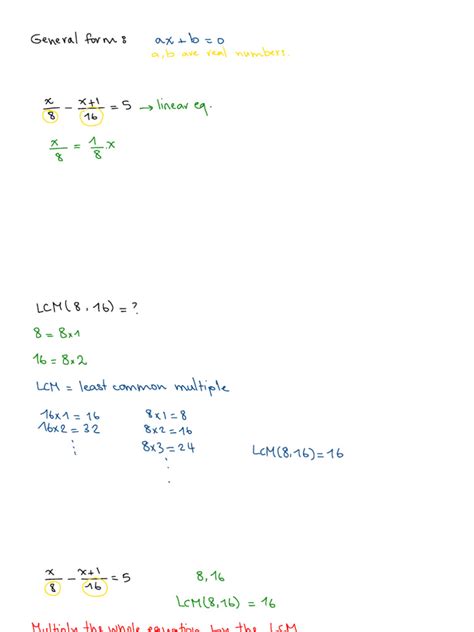 General form : ax + b = 0
a, b are real numbers.
x/8 - x+1/16 = 5 → linear eq.
x/8 = 1/8 . x
LCM(8,16) = ?
8 = 8×1
16 = 8×2
LCM = least common multiple
16×1 = 16 8×1 = 8
16×2 = 32 8×2 = 16
⋮ 8×3 = 24 LCM(8,16) = 16
⋮
x/8 - x+1/16 = 5 8, 16
LCM(8,16) = 16
Multiply the whole equation by the LCM